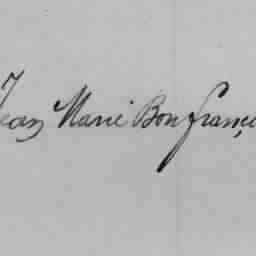 Jean Marie Bon françi